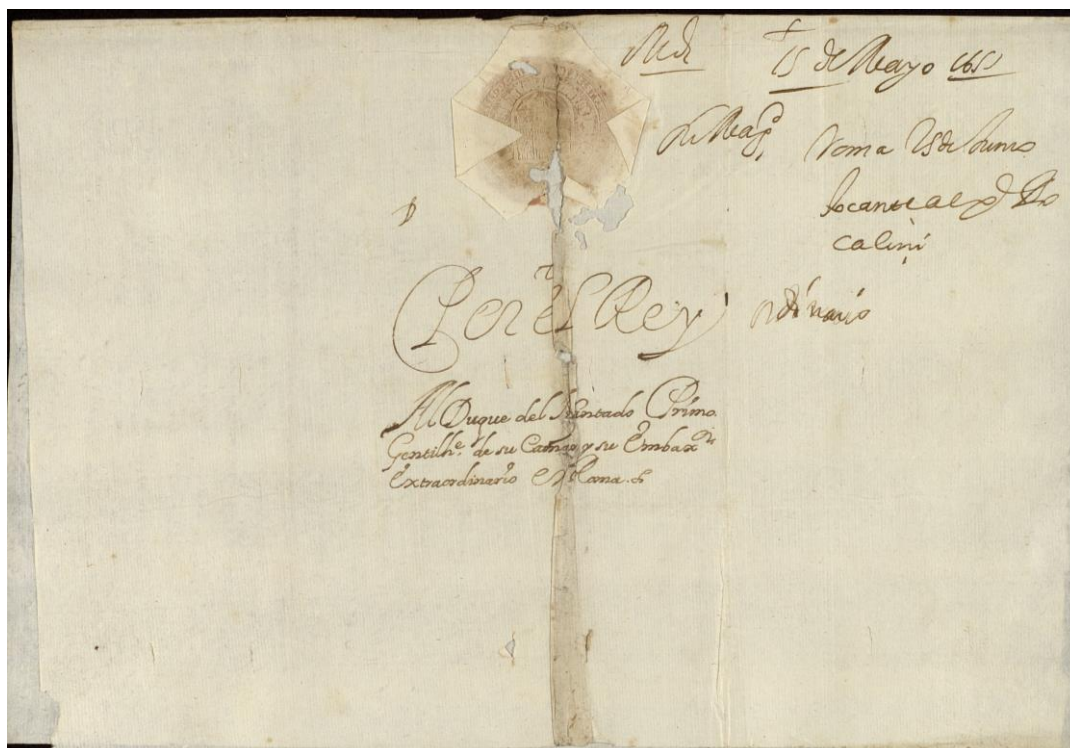 15 de Mayo 1651
Su Mag.d
Roma 25 de Junio
tocante al
calini
Por el Rey
ordinario
Al Duque del Infantado Primo
Gentilhe. de su Camara y su Embaxor
Extraordinario en Roma.